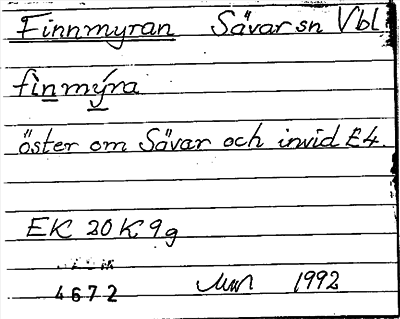 Finnmyran Sävar sn Vbl
fìnmýra
öster om Sävar och invid E4.
EK 20K9g
4672 1992